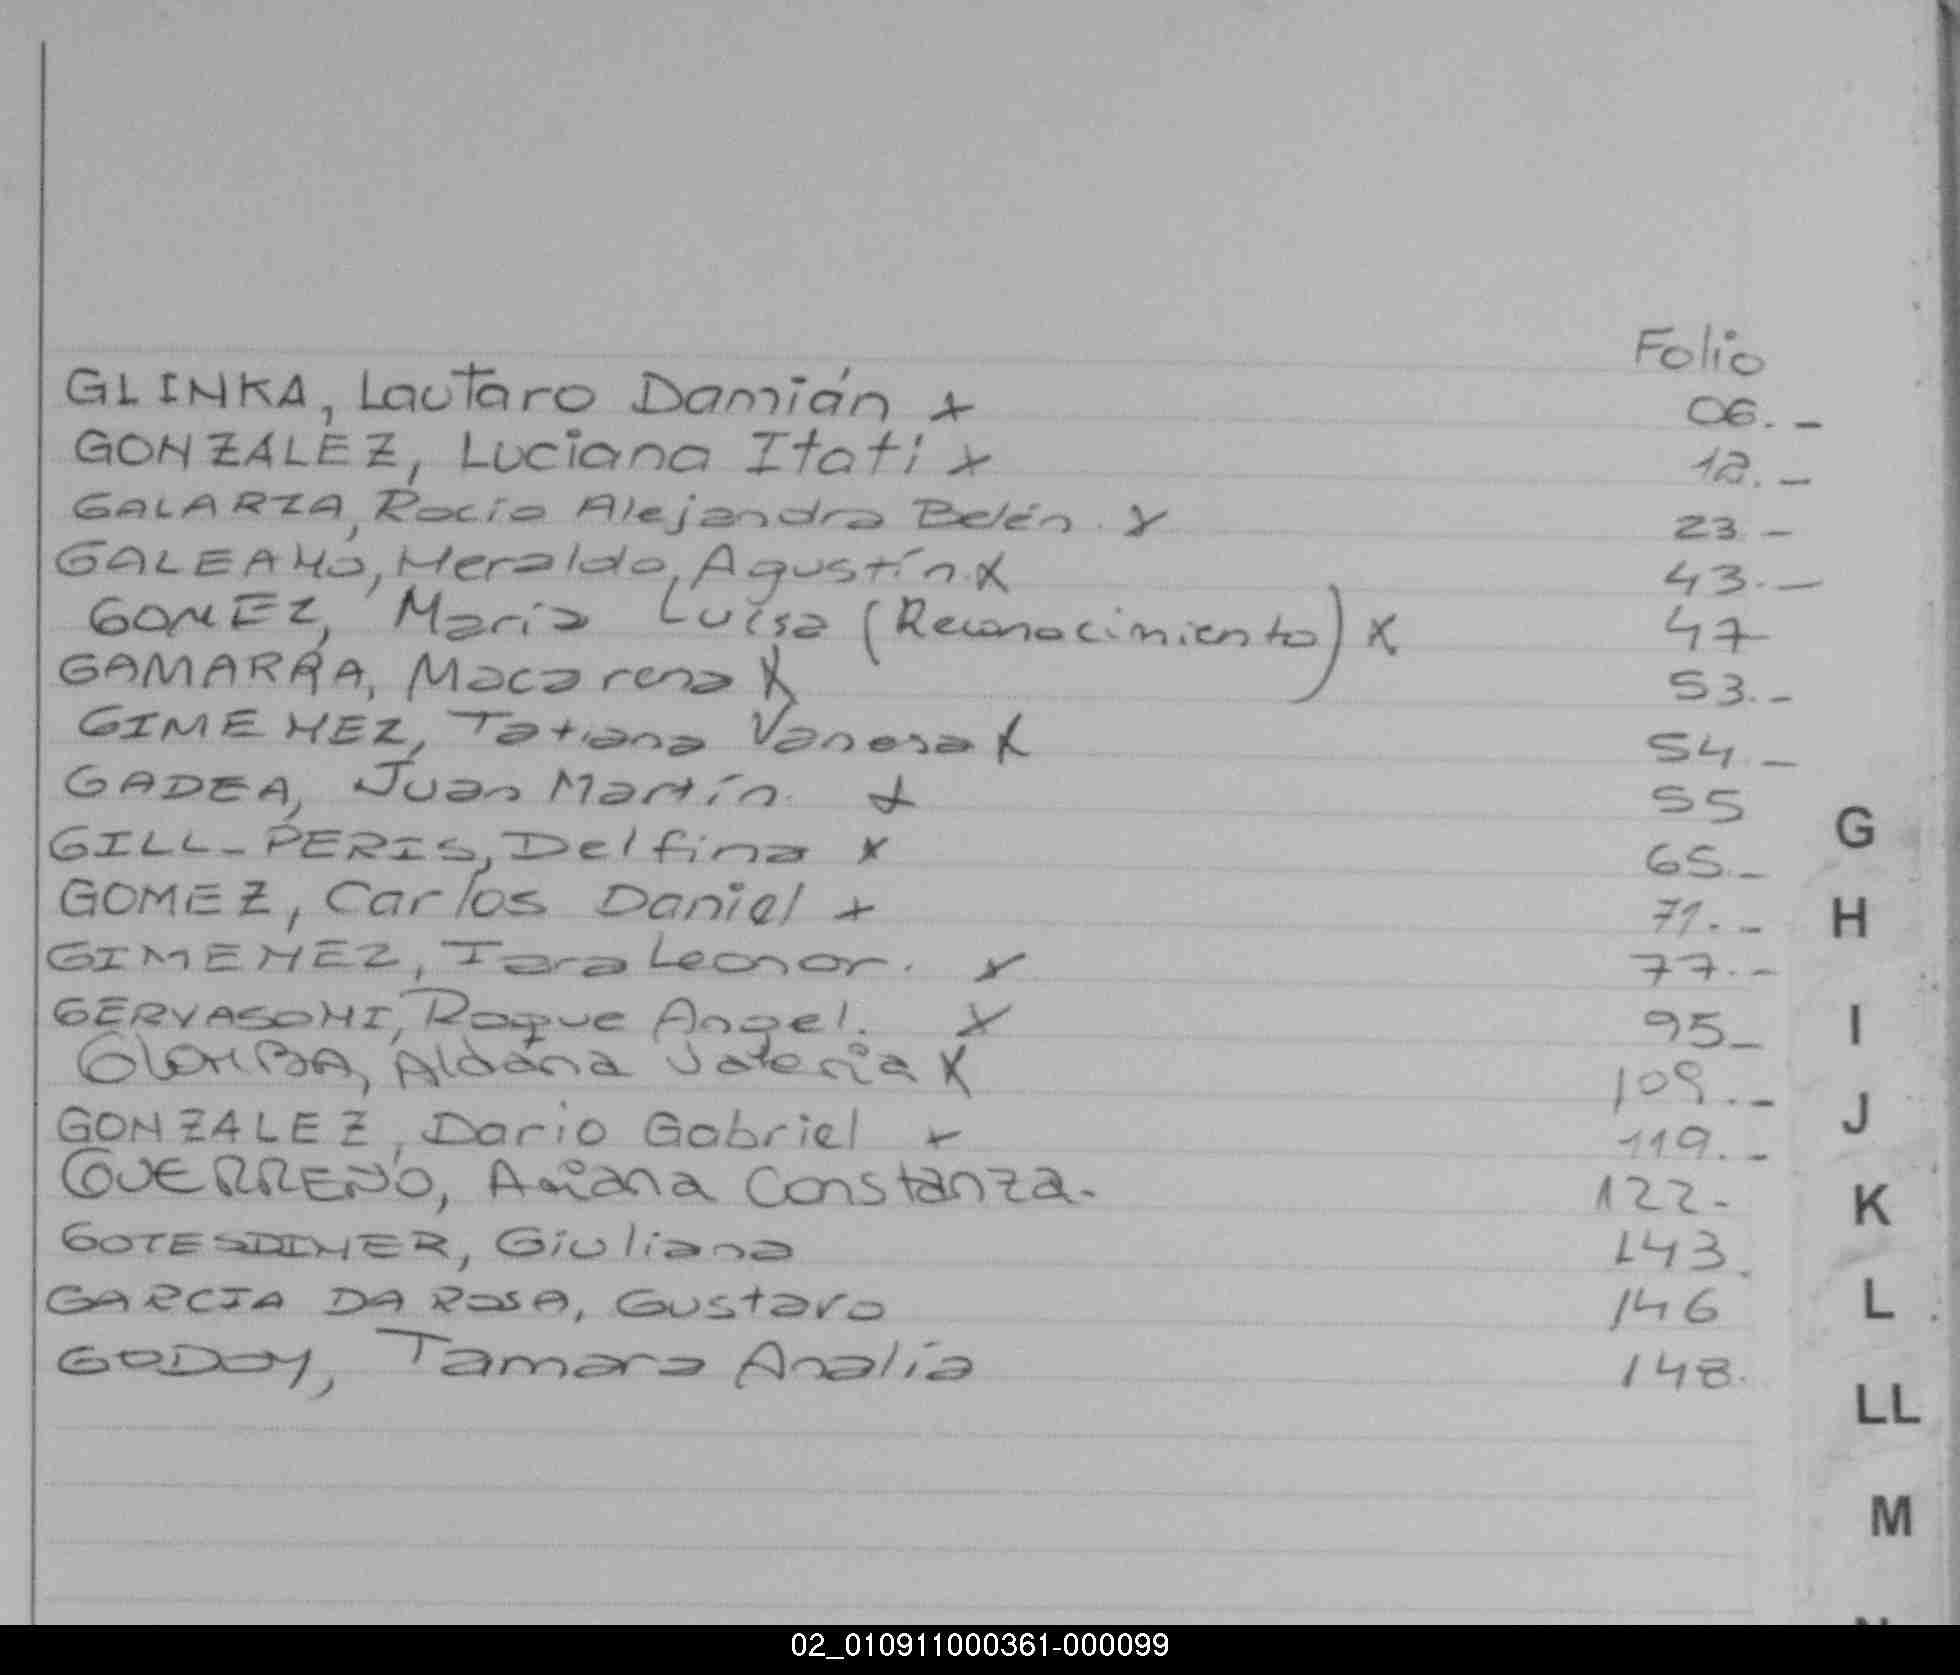 Folio
GLINKA, Lautaro Damián x 06. -
GONZALEZ, Luciana Itati x 12. -
GALARZA, Rocio Alejandra Belén. x 23 -
GALEANO, Heraldo, Agustín. x 43. -
GOMEZ, Maria Luisa (Reconocimiento) x 47
GAMARRA, Macarena x 53. -
GIMENEZ, Tatiana Vanesa x 54. -
GADEA, Juan Martín. x 55
GILL-PERIS, Delfina x 65. -
GOMEZ, Carlos Daniel x 71. -
GIMENEZ, Tara Leonor. x 77. -
GERVASONI, Roque Angel. x 95 -
Aldana Valeria x 109. -
GONZALEZ, Dario Gabriel x 119. -
GUERREÑO, Ariana Constanza. 122-
GOTESDINER, Giuliana 143.
GARCIA DA ROSA, Gustavo 146
GODOY, Tamara Analía 148.
G
H
I
J
K
L
LL
M
02_010911000361-000099